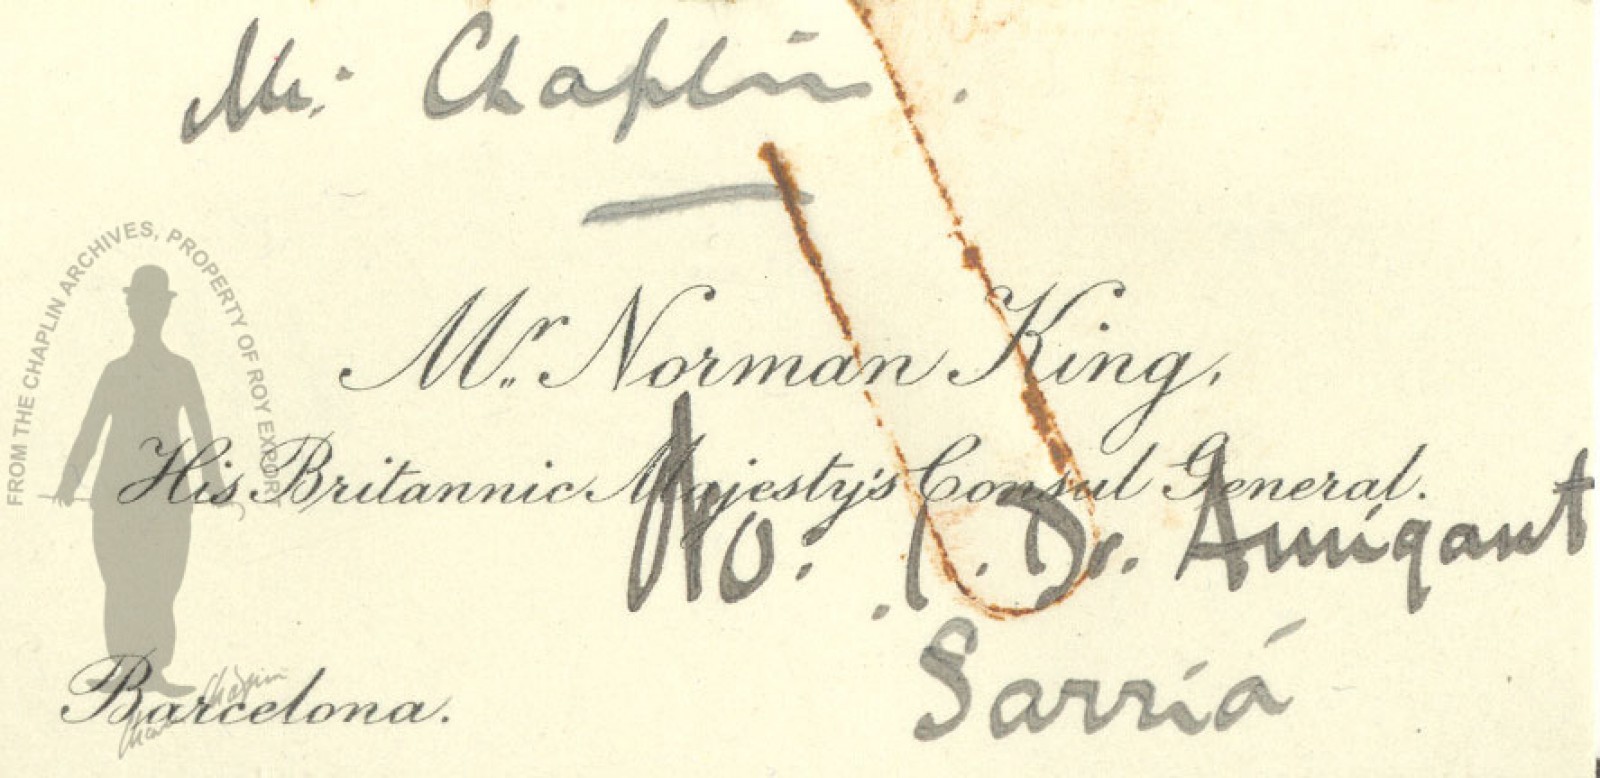 Mr. Chaplin.
Mr. Norman King,
His Britannic Majesty's Consul General.
No. 1. Dr. Amigant
Sarriá
Barcelona.
FROM THE CHAPLIN ARCHIVES, PROPERTY OF ROY EXPORT
Chaplin